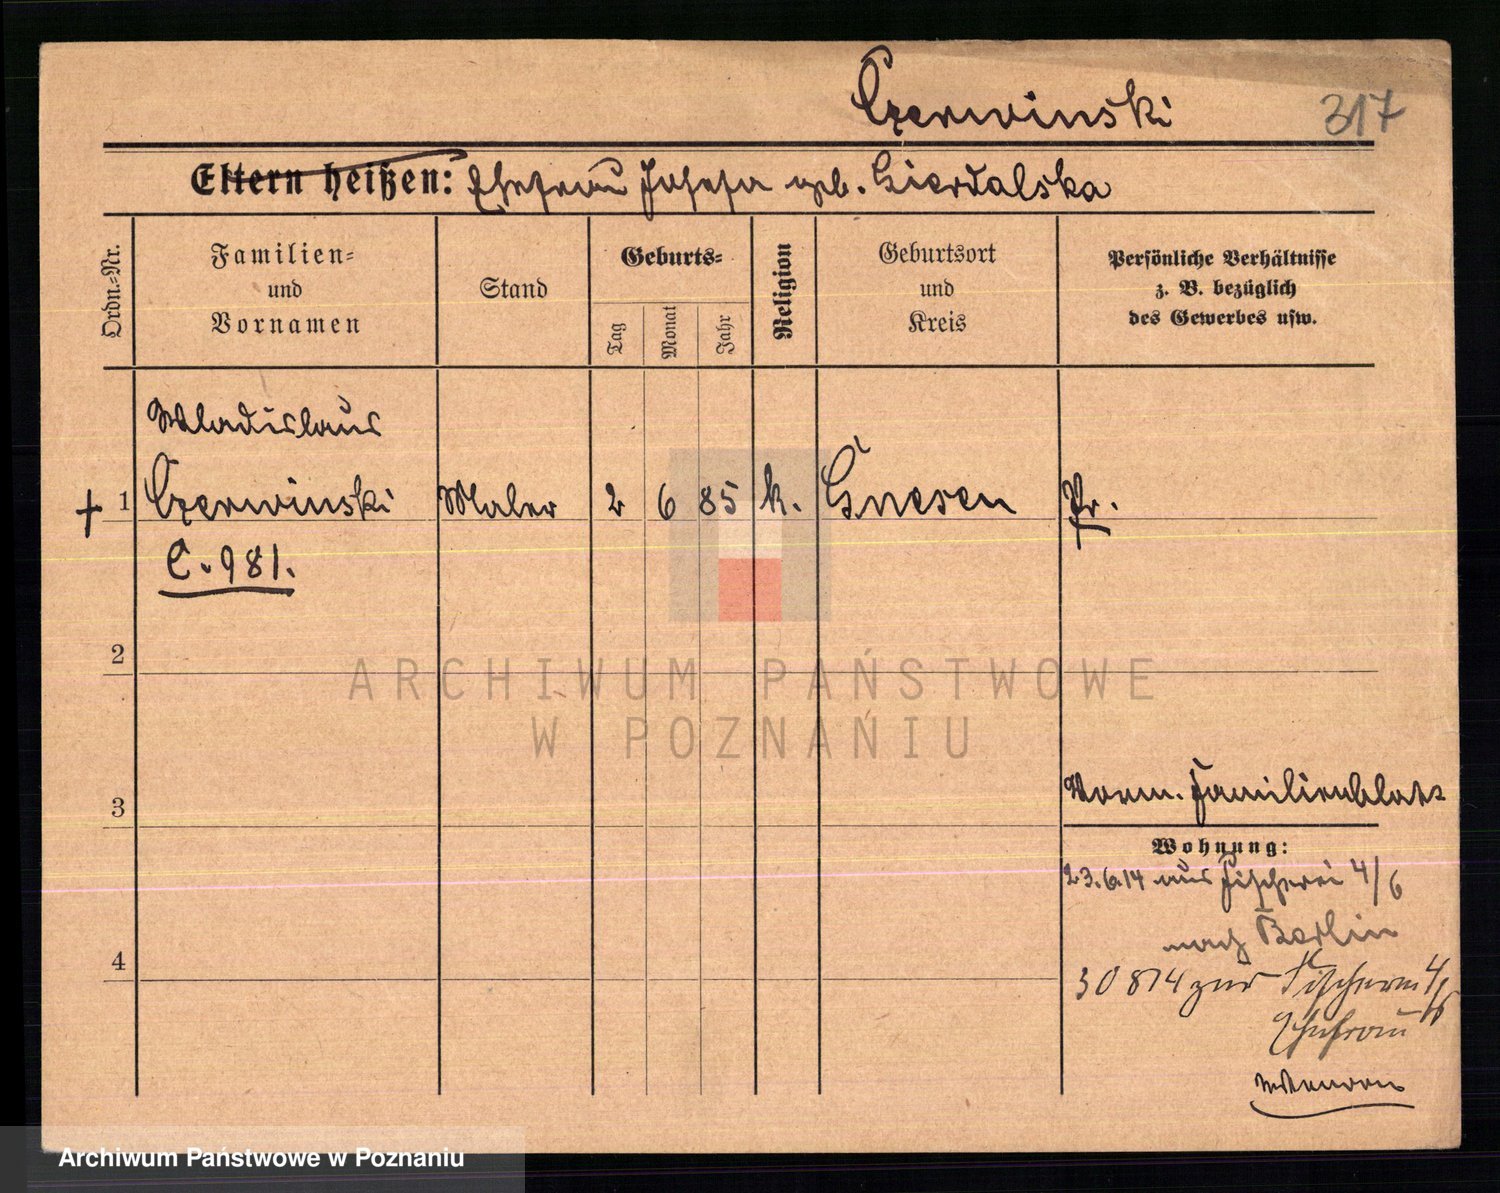 Czerwinski 317
Eltern heißen: Ehefrau Josefa geb. Gierdalska
Ordn.-Nr.
Familien-
und
Vornamen
Stand
Geburts-
Tag
Monat
Jahr
Religion
Geburtsort
und
Kreis
Persönliche Verhältnisse
z. B. bezüglich
des Gewerbes usw.
Wladislaus
+ 1 Czerwinski Maler 2 6 85 k. Gnesen Pr.
C. 981.
2
3
Vorm. Familienblatt
Wohnung:
23.6.14 aus Fischerei 4/6
nach Berlin
4
30 8 14 zur Fischerei 4/6
Ehefrau
ARCHIWUM PAŃSTWOWE
W POZNANIU
Archiwum Państwowe w Poznaniu